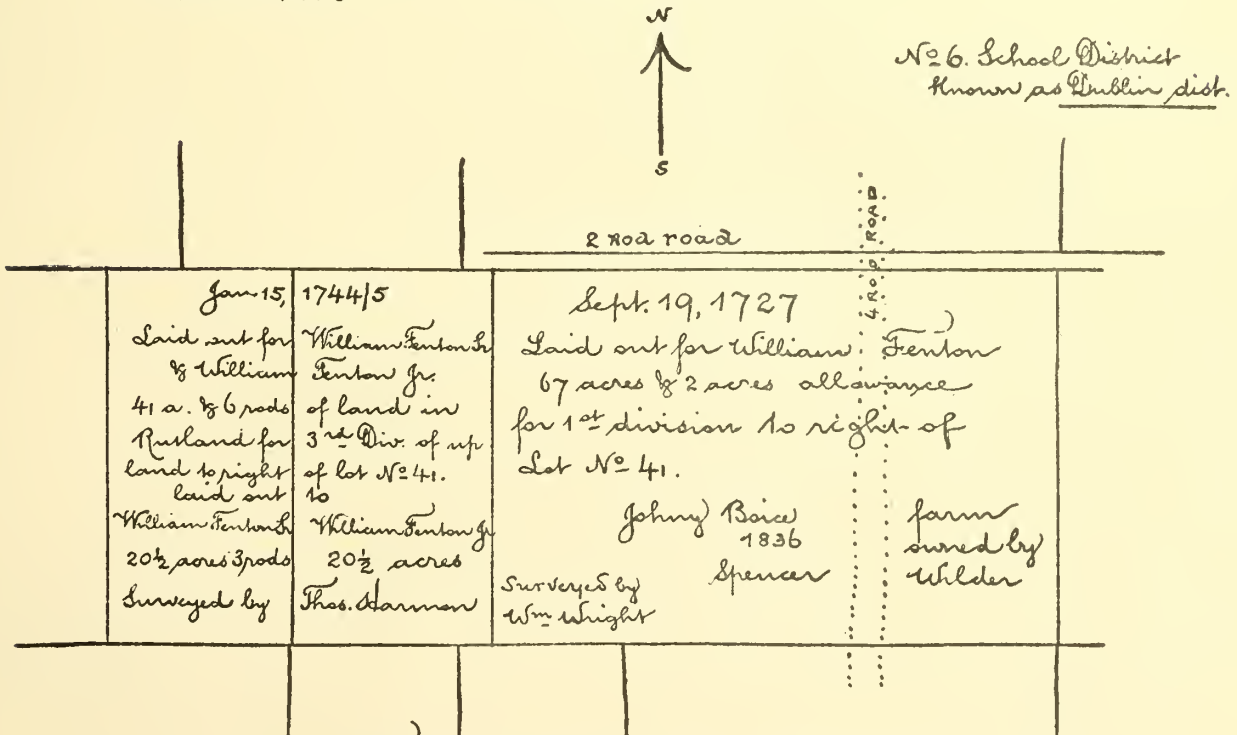 N
S
No 6. School District
Known as Dublin dist.
2 rod road
4 ROD ROAD
Jan 15, 1744/5
Laid out for William Fenton Sr
& William Fenton Jr.
41 a. & 6 rods of land in
Rutland for 3rd Div. of up
land to right of lot No 41.
laid out to
William Fenton Sr William Fenton Jr
20½ acres 3 rods 20½ acres
Surveyed by Thos. Harmon
Sept. 19, 1727
Laid out for William Fenton
67 acres & 2 acres allowance
for 1st division to right of
Lot No 41.
Johny Boice
1836
Spencer
Surveyed by
Wm Wright
farm
owned by
Wilder